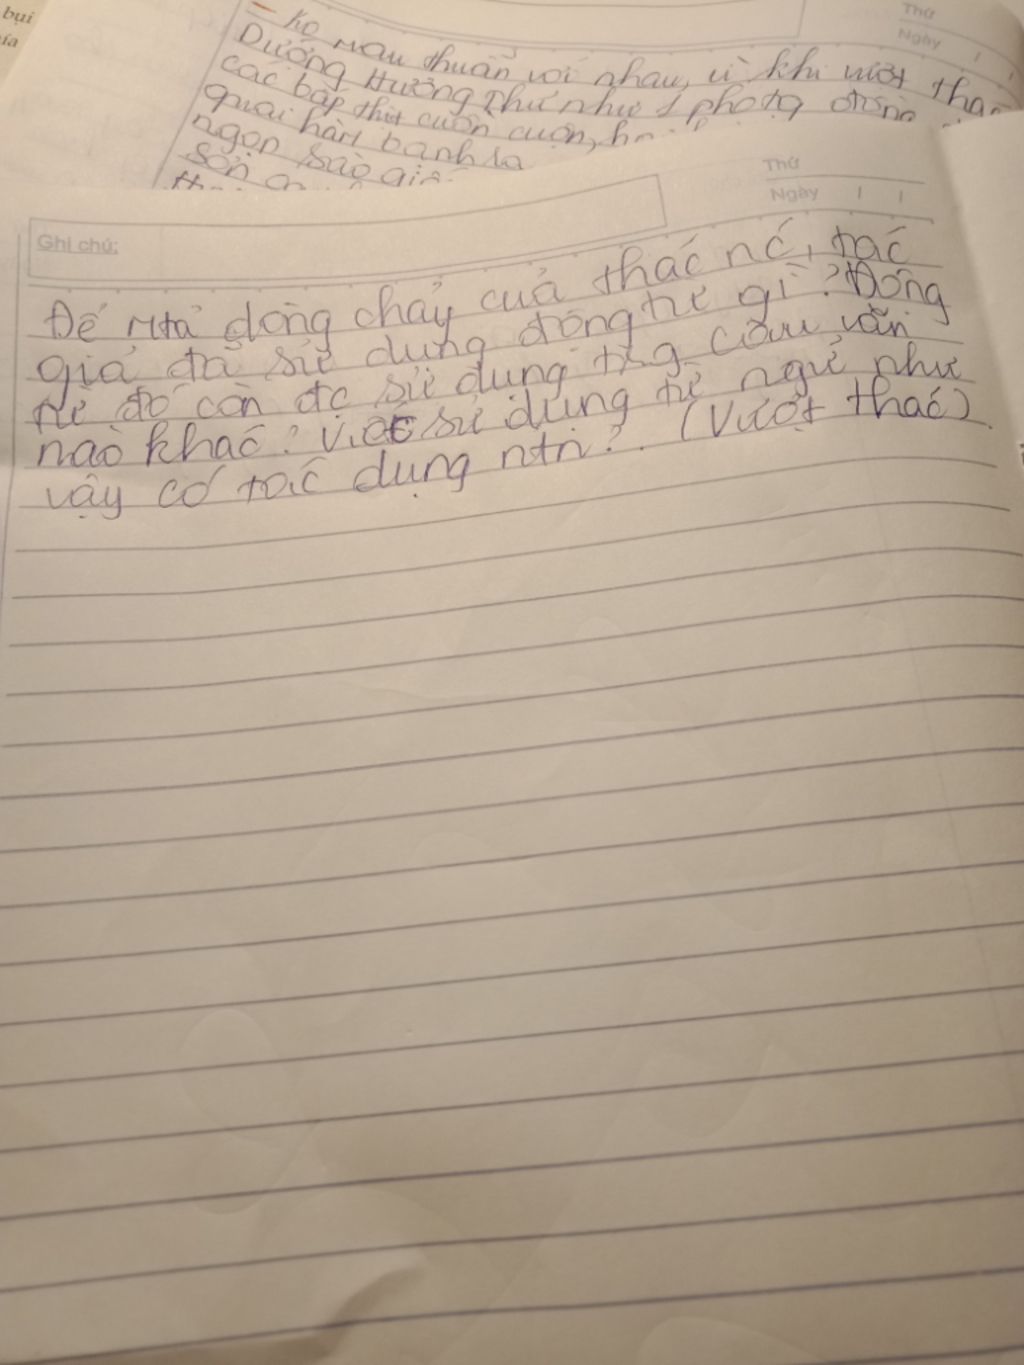 bụi
ía
Thứ
Ngày / /
- Ko mâu thuẫn với nhau, vì khi vượt thác
Dượng Hương Thư như 1 pho tg đồng
các bắp thịt cuồn cuộn,
quai hàm bạnh ra
ngọn sào
Thứ
Ngày / /
Ghi chú:
Để mtả dòng chảy của thác nc, tác
giả đã sử dụng động từ gì? Động
từ đó còn đc sử dụng trg câu văn
nào khác? Việc sử dụng từ ngữ như
vậy có tác dụng ntn? (Vượt thác)